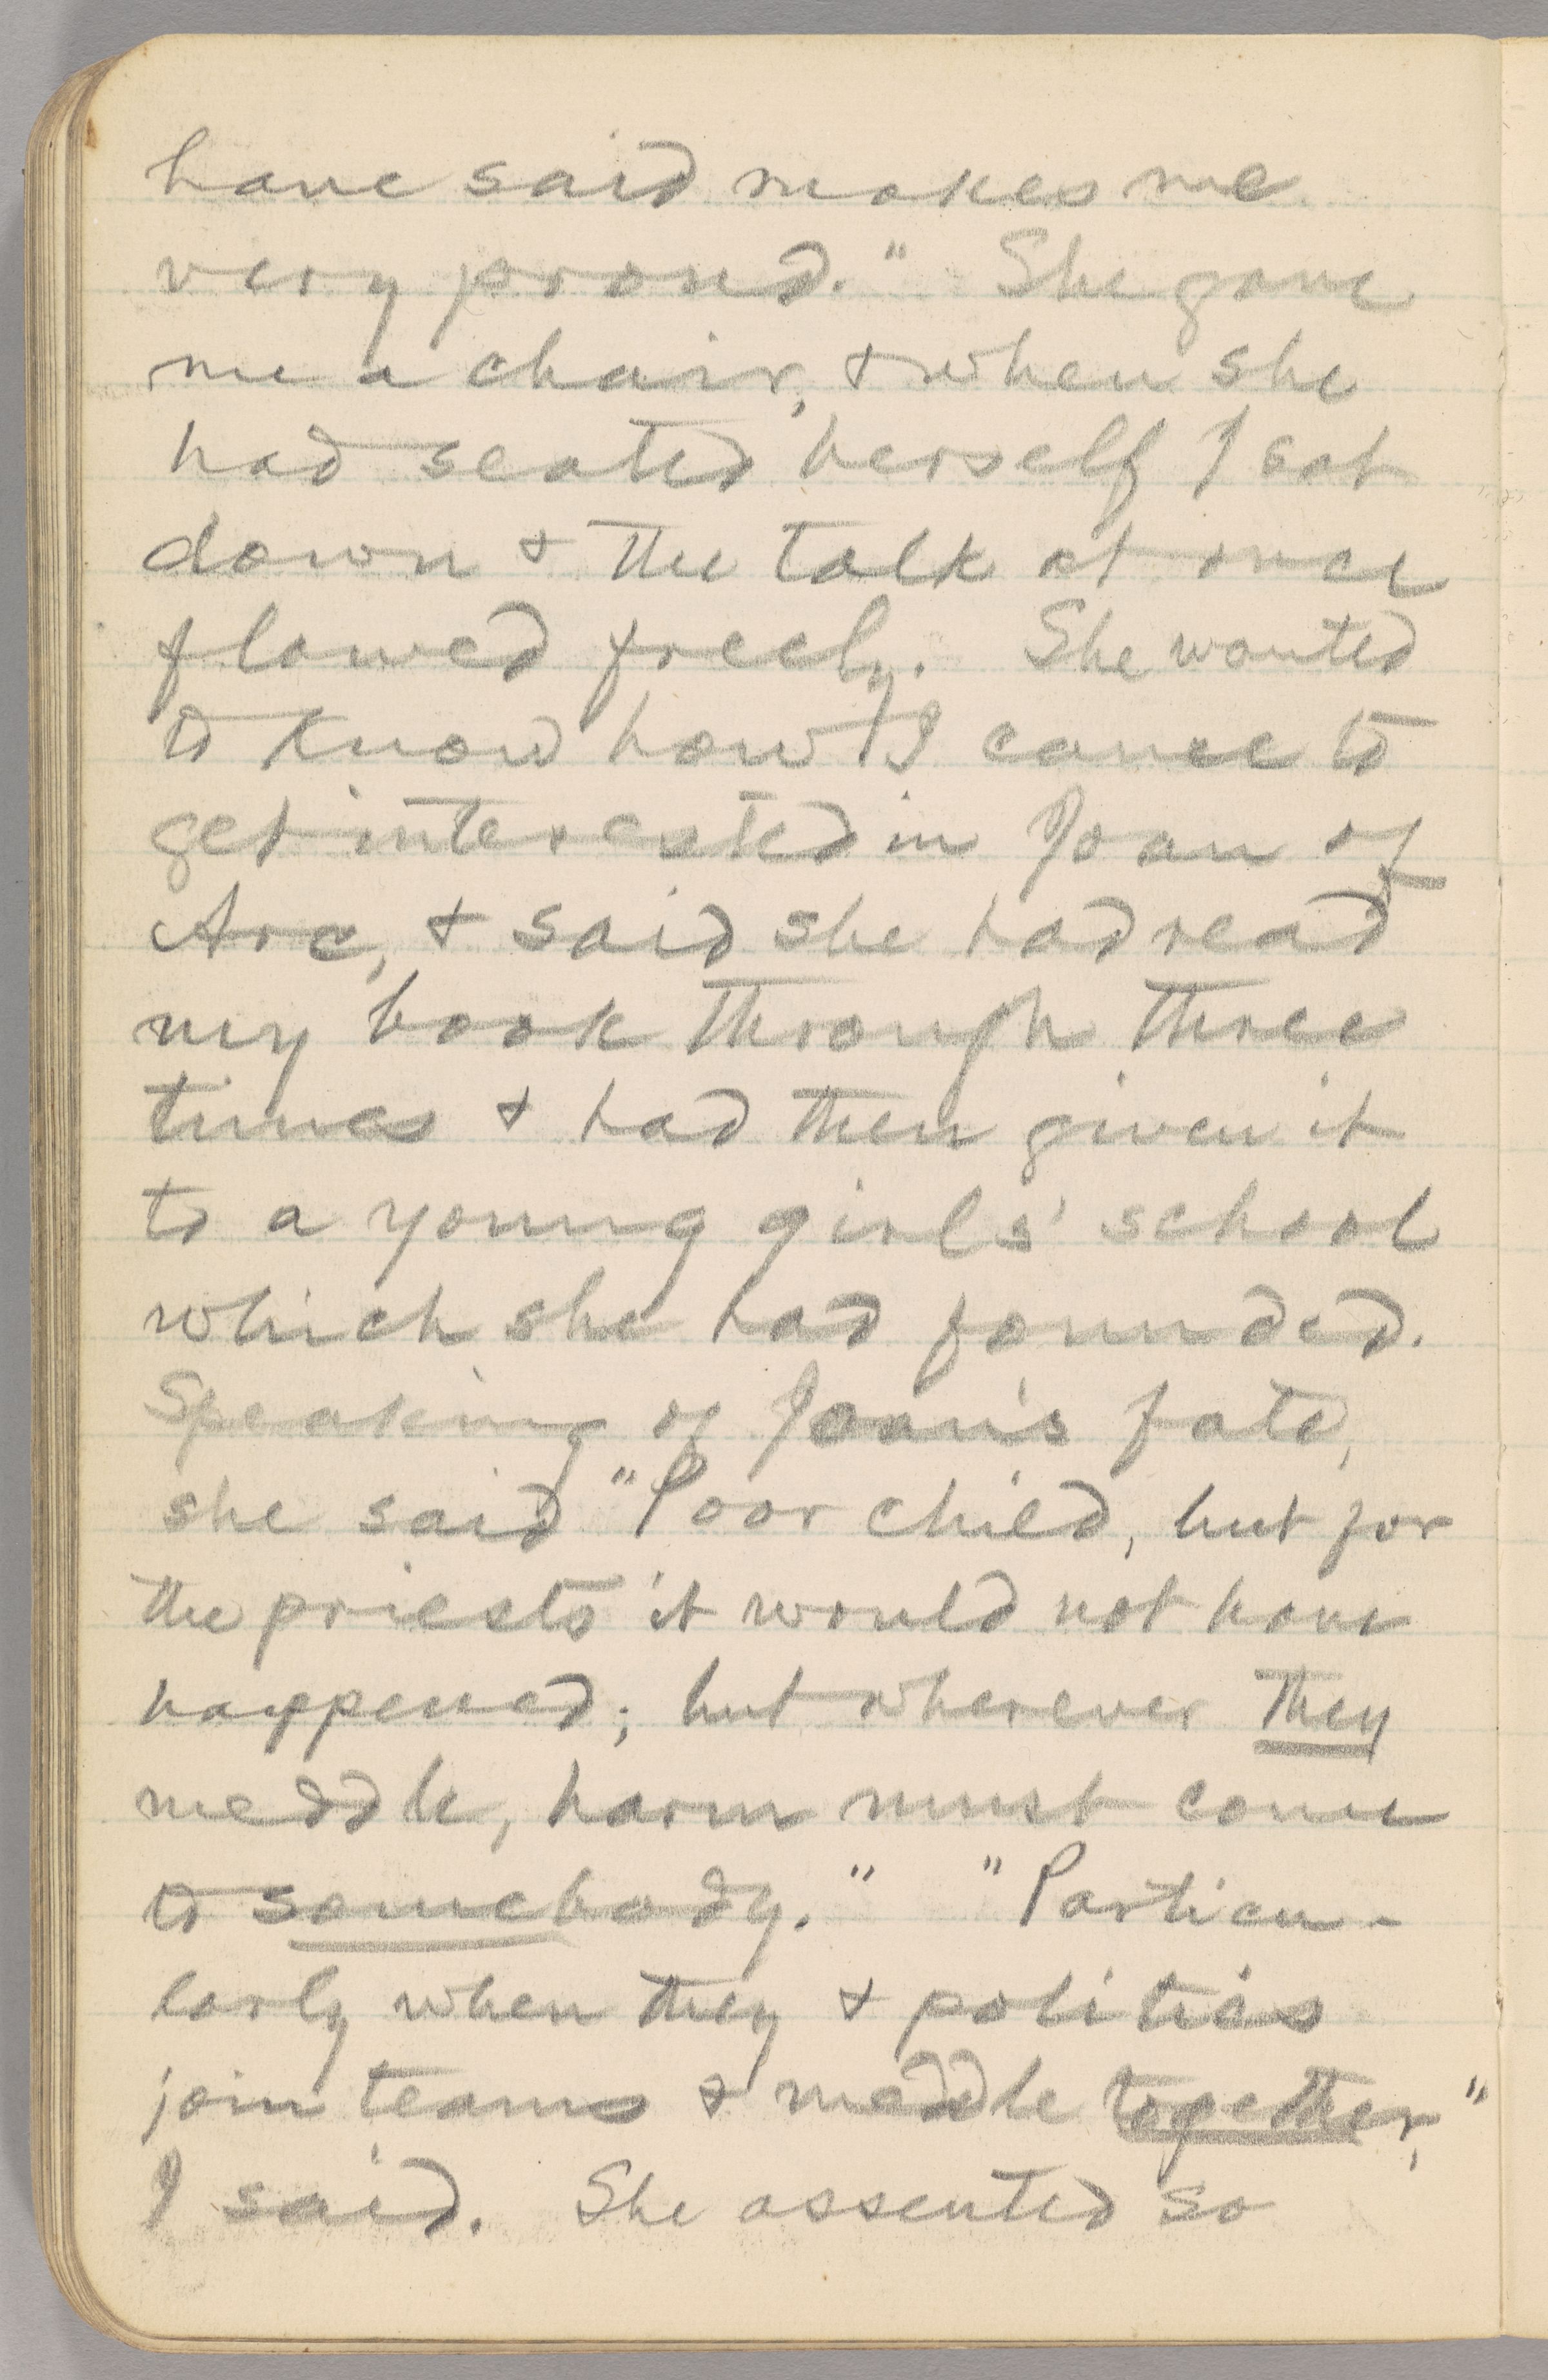 have said makes me
very proud." She gave
me a chair, & when she
had seated herself I sat
down & the talk at once
flowed freely. She wanted
to know how I came to
get interested in Joan of
Arc, & said she had read
my book through three
times & had then given it
to a young girls' school
which she had founded.
Speaking of Joan's fate,
she said "Poor child, but for
the priests it would not have
happened; but wherever they
meddle, harm must come
to somebody." "Particu-
larly when they & politics
join teams & meddle together,"
I said. She assented so